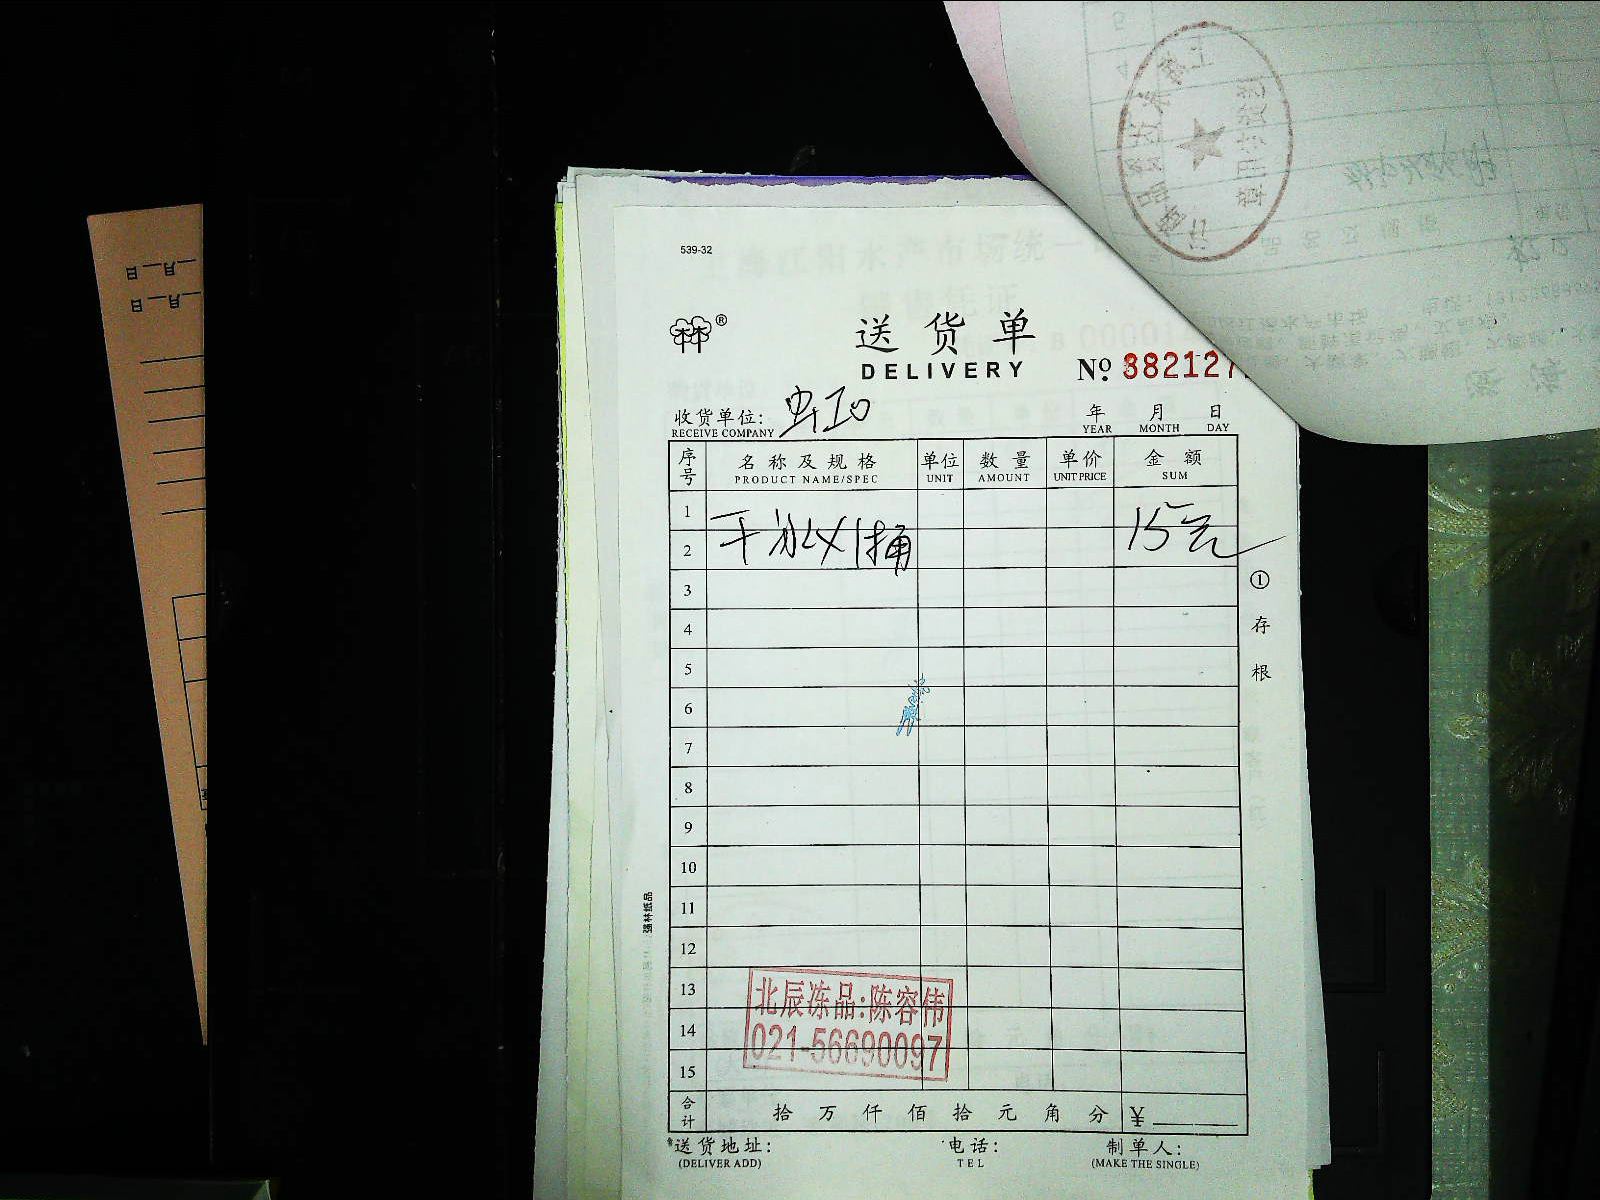 539-32
®
送货单
DELIVERY
№ 382127
收货单位:
RECEIVE COMPANY
年 月 日
YEAR MONTH DAY
序号 名称及规格 单位 数量 单价 金额
PRODUCT NAME/SPEC UNIT AMOUNT UNIT PRICE SUM
1
2 干冰X1桶 15元
3
4
5
6
7
8
9
10
11
12
13
14
15
① 存根
强林纸品
北辰冻品:陈容伟
021-56690097
合计 拾万仟佰拾元角分 ¥
送货地址: 电话: 制单人:
(DELIVER ADD) TEL (MAKE THE SINGLE)